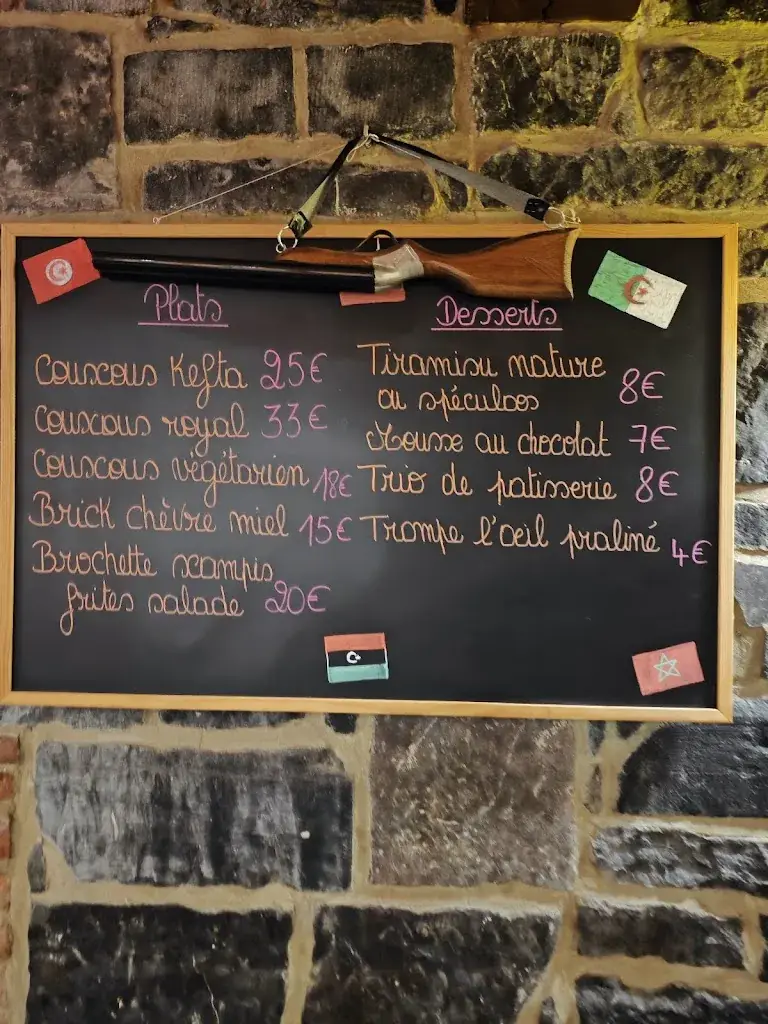 Plats
Couscous Kefta 25€
Couscous royal 33€
Couscous végétarien 18€
Brick chèvre miel 15€
Brochette scampis
frites salade 20€
Desserts
Tiramisu nature
ou spéculoos 8€
Mousse au chocolat 7€
Trio de patisserie 8€
Trompe l'oeil praliné 4€